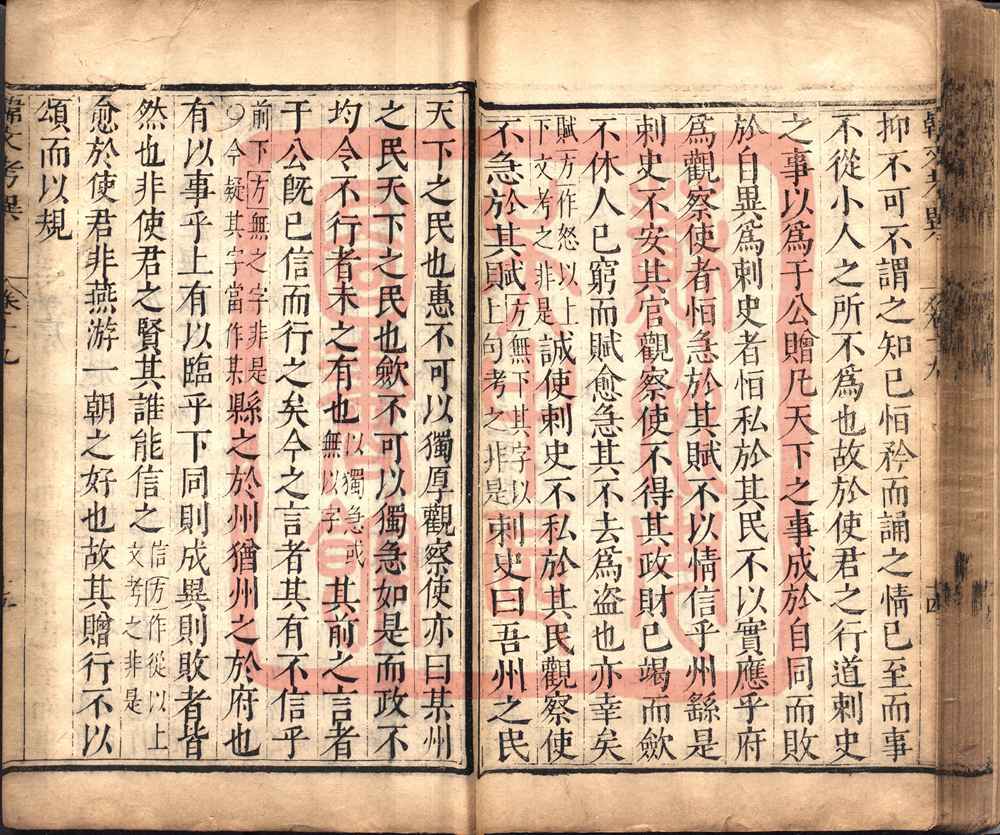 抑不可不謂之知已恒矜而誦之情已至而事
不從小人之所不爲也故於使君之行道刺史
之事以爲于公贈凡天下之事成於自同而敗
於自異爲刺史者恒私於其民不以實應乎府
爲觀察使者恒急於其賦不以情信乎州縣是
刺史不安其官觀察使不得其政財已竭而斂
不休人已窮而賦愈急其不去爲盗也亦幸矣
賦方作怒以上
下文考之非是
誠使刺史不私於其民觀察使
不急於其賦
方無下其字以
上句考之非是
刺史曰吾州之民
天下之民也惠不可以獨厚觀察使亦曰某州
之民天下之民也斂不可以獨急如是而政不
均令不行者未之有也
以獨急或
無以字
其前之言者
于公旣已信而行之矣今之言者其有不信乎
前下方無之字非是
○今疑其字當作某
縣之於州猶州之於府也
有以事乎上有以臨乎下同則成異則敗者皆
然也非使君之賢其誰能信之
信方作從以上
文考之非是
愈於使君非燕游一朝之好也故其贈行不以
頌而以規
韓文考異
卷十九